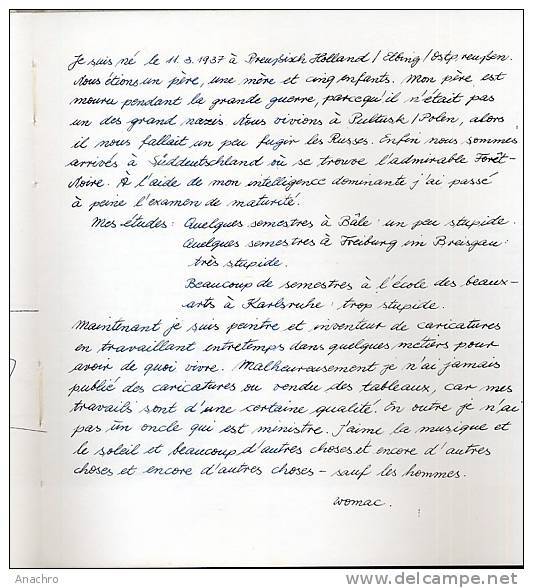 Je suis né le 11. 3. 1937 à Preußisch Holland / Elbing / Ostpreußen.
Nous étions un père, une mère et cinq enfants. Mon père est
mouru pendant la grande guerre, parcequ'il n'était pas
un des grand nazis. Nous vivions à Pultusk / Polen, alors
il nous fallait un peu fugir les Russes. Enfin nous sommes
arrivés à Süddeutschland où se trouve l'admirable Forêt-
Noire. À l'aide de mon intelligence dominante j'ai passé
à peine l'examen de maturité.
Mes études: Quelques semestres à Bâle: un peu stupide.
Quelques semestres à Freiburg im Breisgau:
très stupide.
Beaucoup de semestres à l'école des beaux-
arts à Karlsruhe: trop stupide.
Maintenant je suis peintre et inventeur de caricatures
en travaillant entretemps dans quelques métiers pour
avoir de quoi vivre. Malheureusement je n'ai jamais
publié des caricatures ou vendu des tableaux, car mes
travails sont d'une certaine qualité. En outre je n'ai
pas un oncle qui est ministre. J'aime la musique et
le soleil et beaucoup d'autres choses et encore d'autres
choses et encore d'autres choses – sauf les hommes.
womac.
Anachro
delcampe.net